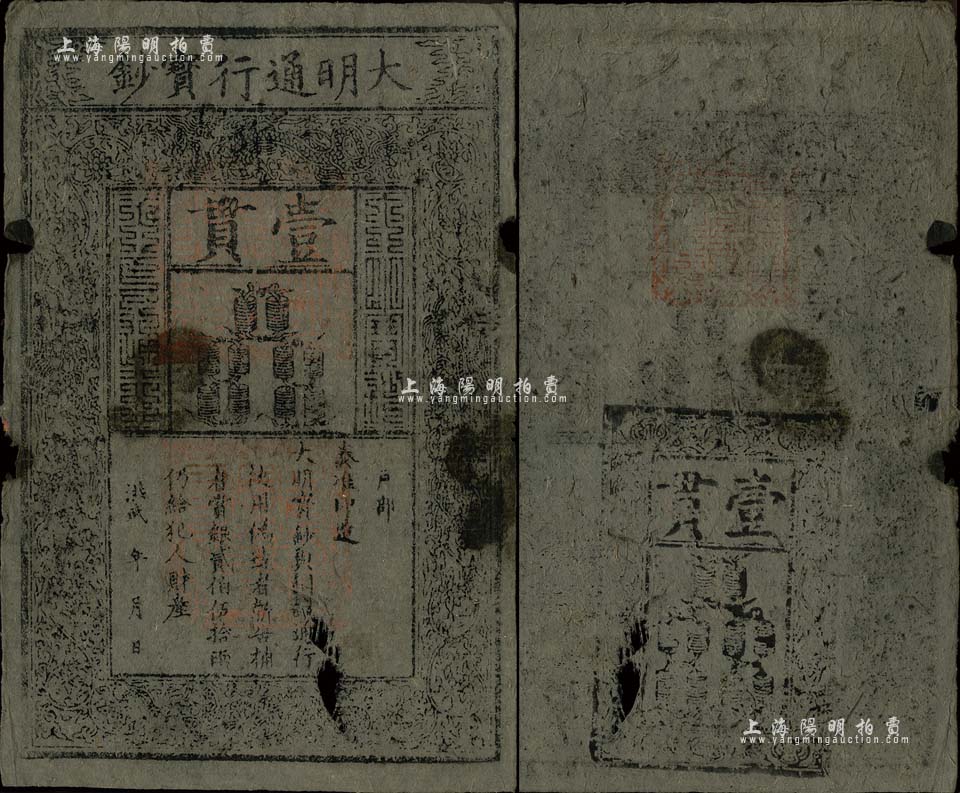 上海陽明拍賣
www.yangmingauction.com
大明通行寳鈔
壹貫
户部
奏准印造
大明寳鈔與制錢通行
使用偽造者斬告捕
者賞銀貳佰伍拾兩
仍給犯人財産
洪武 年 月 日
上海陽明拍賣
www.yangmingauction.com
壹貫
上海陽明拍賣
www.yangmingauction.com